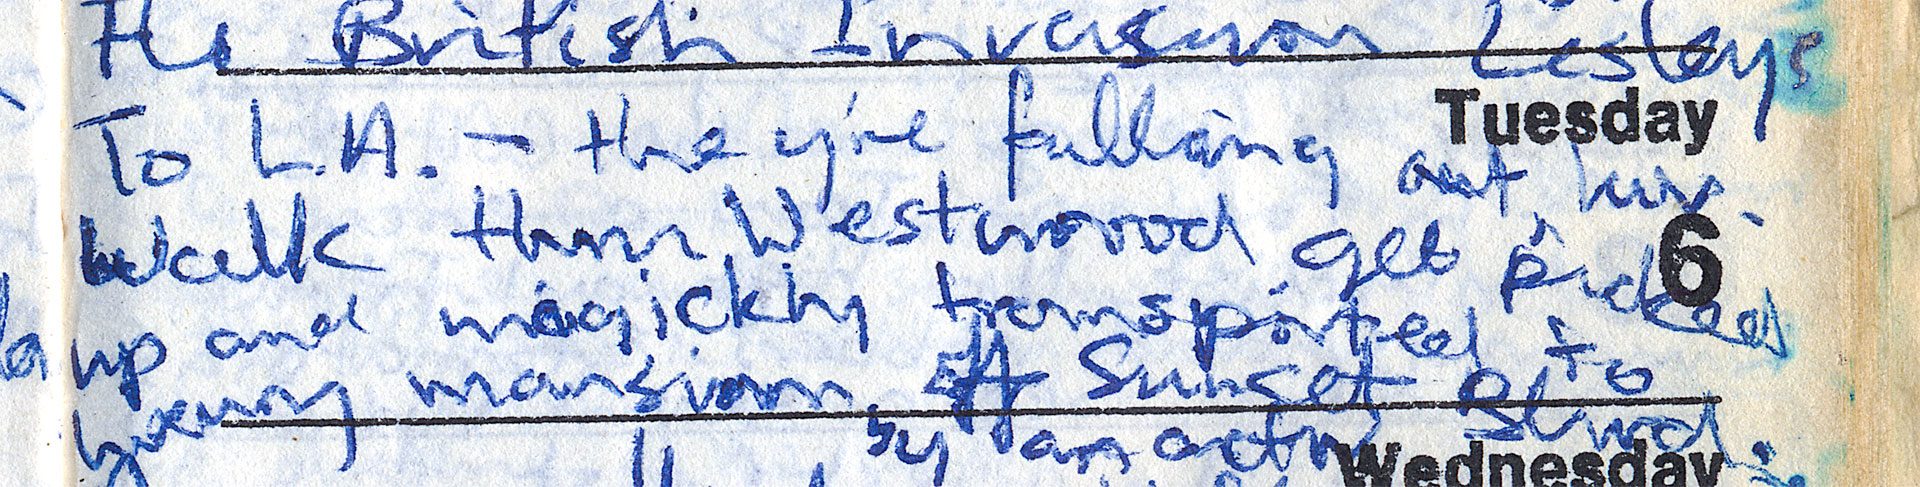 The British Invasion Lesleys
Tuesday
To L.A. - they're falling out,
6
Walk thru Westwood get picked
up and magickly transported to
luxury mansion, off Sunset Blvd.
by an actor
Wednesday